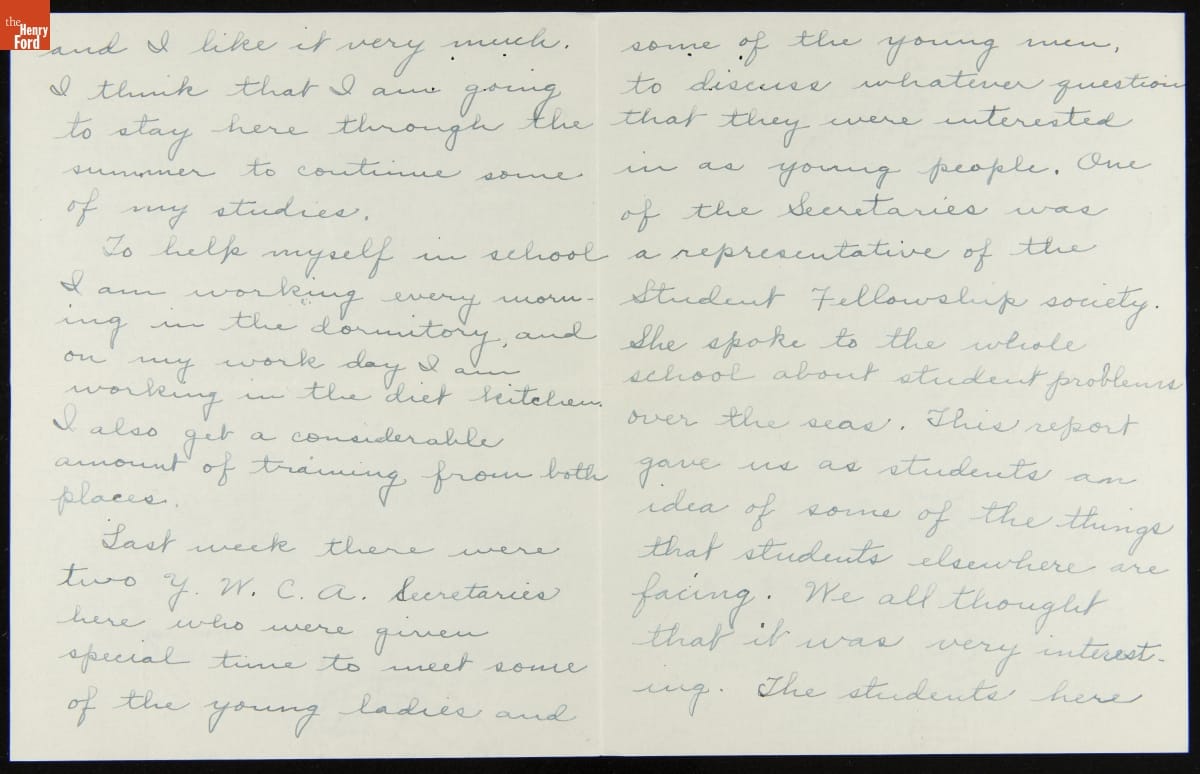 the
Henry
Ford
and I like it very much.
I think that I am going
to stay here through the
summer to continue some
of my studies.
To help myself in school
I am working every morn-
ing in the dormitory, and
on my work day I am
working in the diet kitchen.
I also get a considerable
amount of training from both
places.
Last week there were
two Y. W. C. A. Secretaries
here who were given
special time to meet some
of the young ladies and
some of the young men,
to discuss whatever question
that they were interested
in as young people. One
of the Secretaries was
a representative of the
Student Fellowship society.
She spoke to the whole
school about student problems
over the seas. This report
gave us as students an
idea of some of the things
that students elsewhere are
facing. We all thought
that it was very interest-
ing. The students here